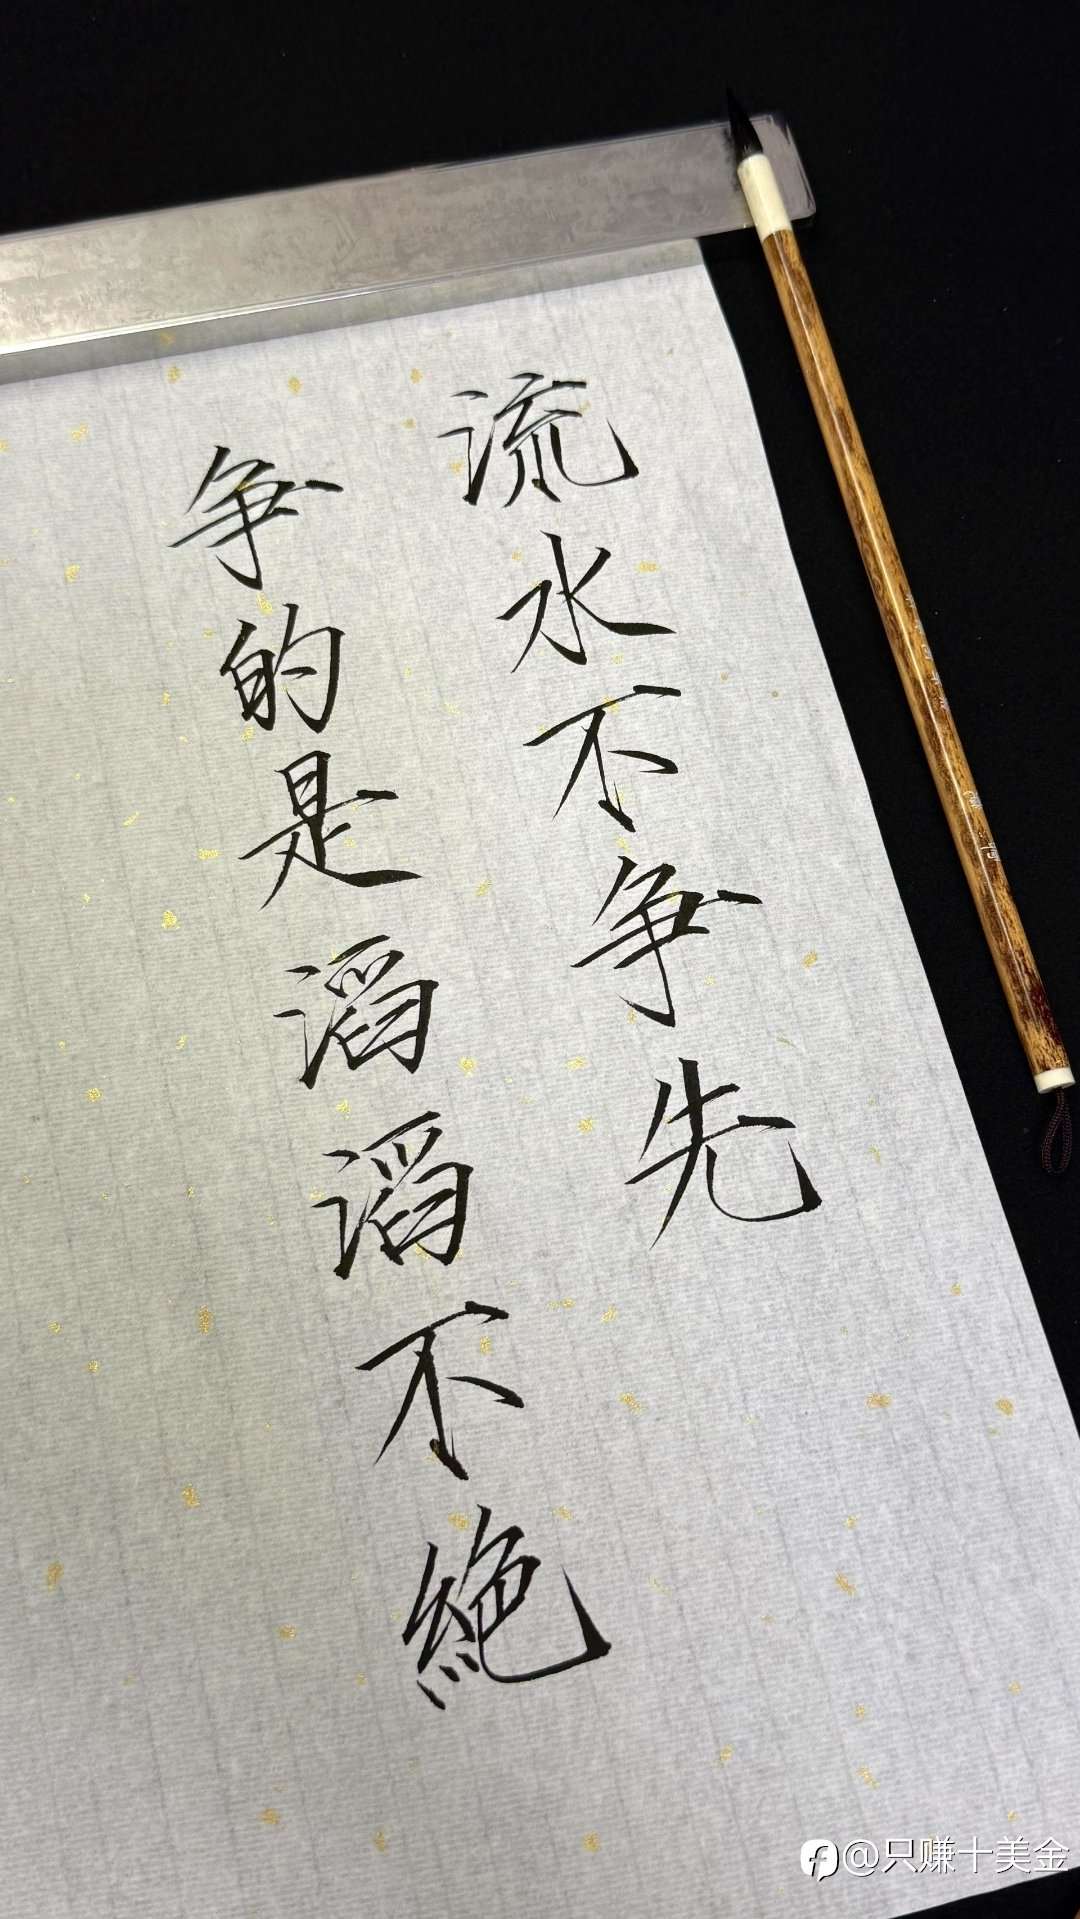 流水不争先
争的是滔滔不絶
@只赚十美金